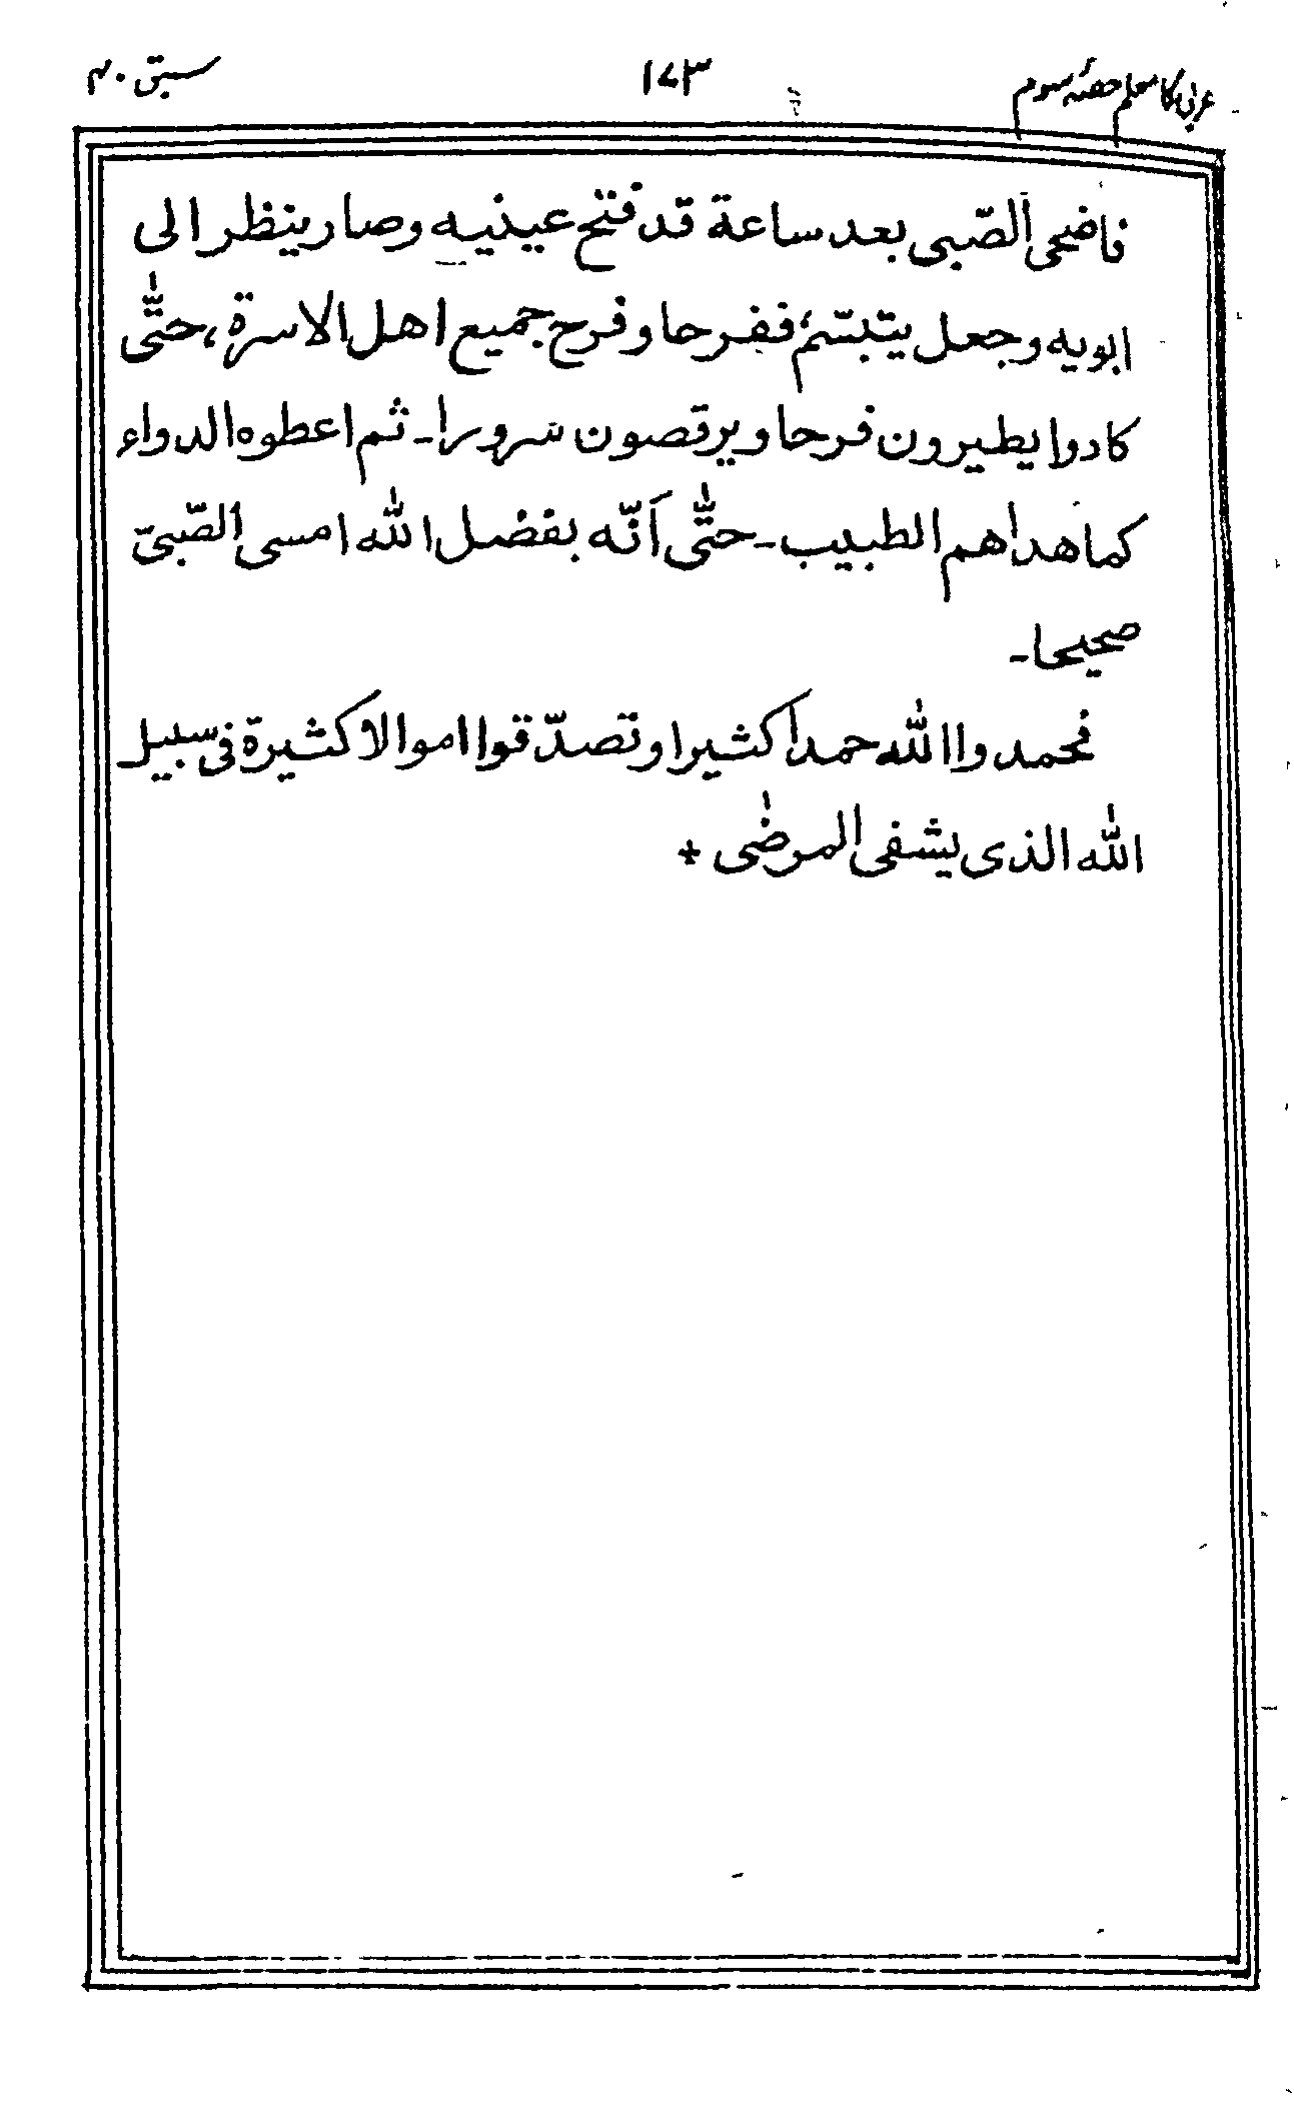 عربی کا معلم حصّہ سوم ۱۷۳ سبق ۴۰
فاضحی الصّبی بعد ساعة قد فتح عینیه وصار ینظر الی
ابویه وجعل یتبسّم، ففرحا وفرح جمیع اهل الاسرة، حتّٰی
کادوا یطیرون فرحا ویرقصون سرورا۔ ثم اعطوه الدواء
کما هداهم الطبیب۔ حتّٰی اَنّه بفضل اللّٰه امسی الصّبیّ
صحیحا۔
فحمدوا اللّٰه حمدا کثیرا وتصدّقوا اموالا کثیرة فی سبیل
اللّٰه الذی یشفی المرضٰی +